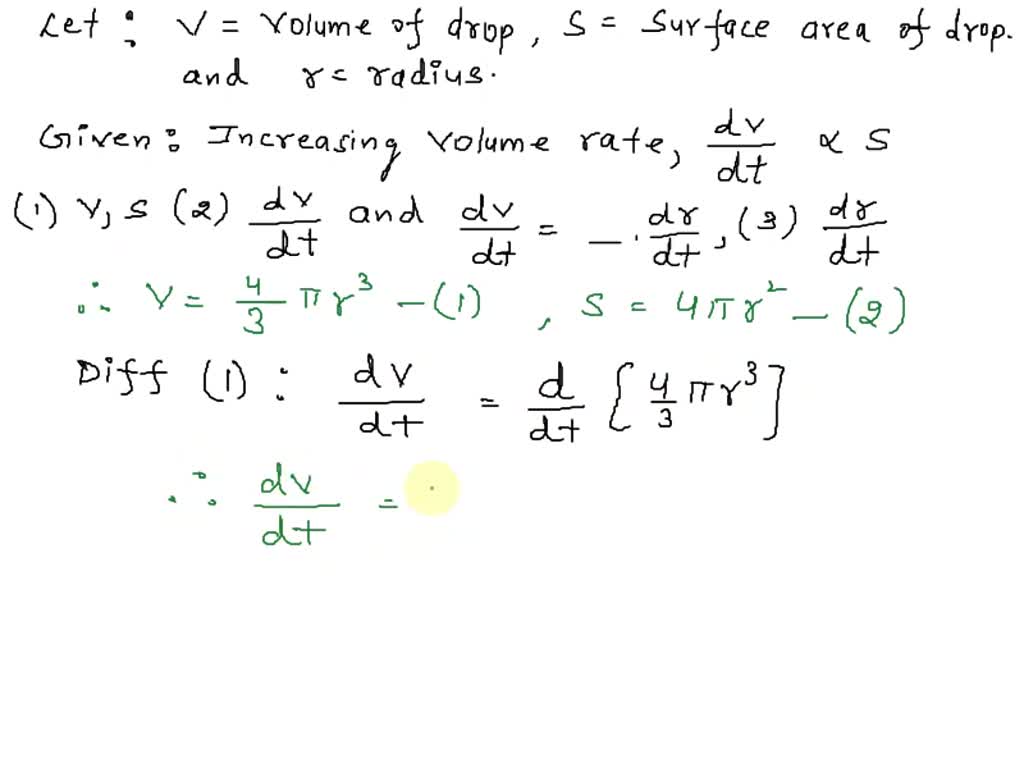 Let : V = Volume of drop, S = Surface area of drop.
and r = radius.
Given : Increasing Volume rate, dv/dt ∝ S
(1) V, S (2) dv/dt and dv/dt = _ . dr/dt, (3) dr/dt
∴ V = 4/3 πr³ – (1) , S = 4πr² – (2)
Diff (1) : dv/dt = d/dt [4/3 πr³]
∴ dv/dt =